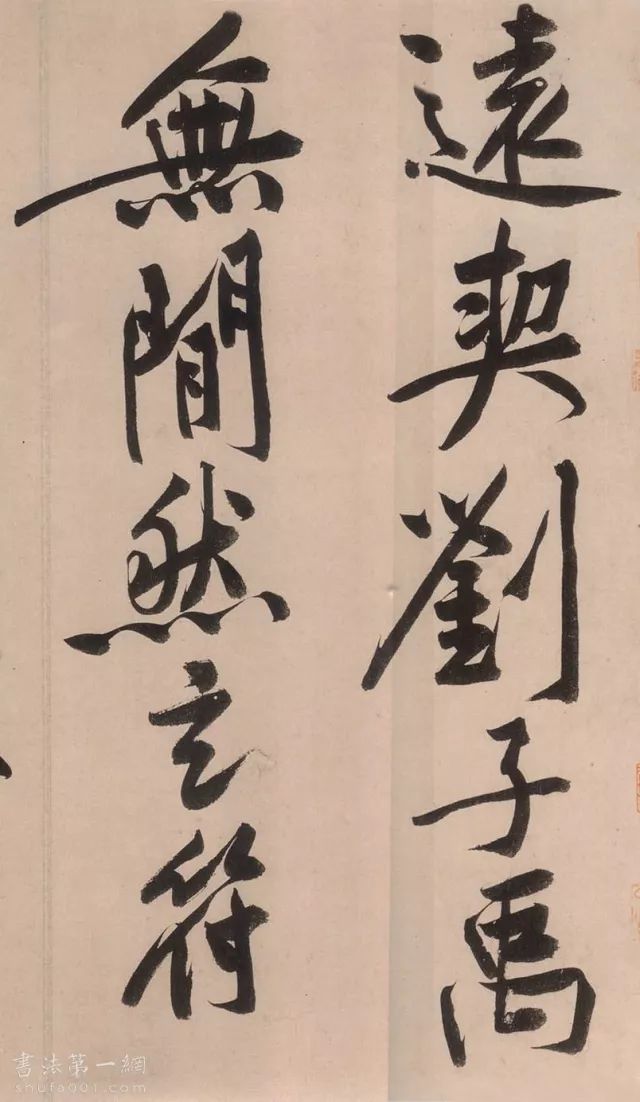 遠契劉子禹
無閒然玄符
書法第一網
shufa001.com